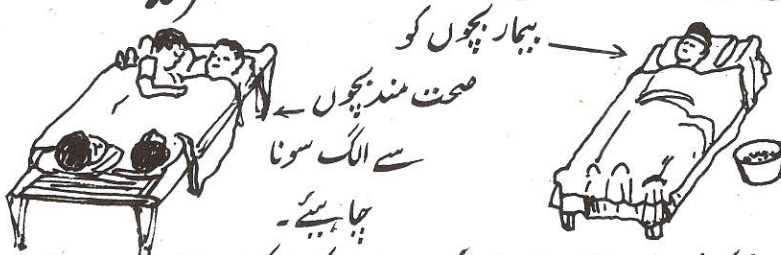 بیمار بچوں کو
صحت مند بچوں
سے الگ سونا
چاہیئے۔